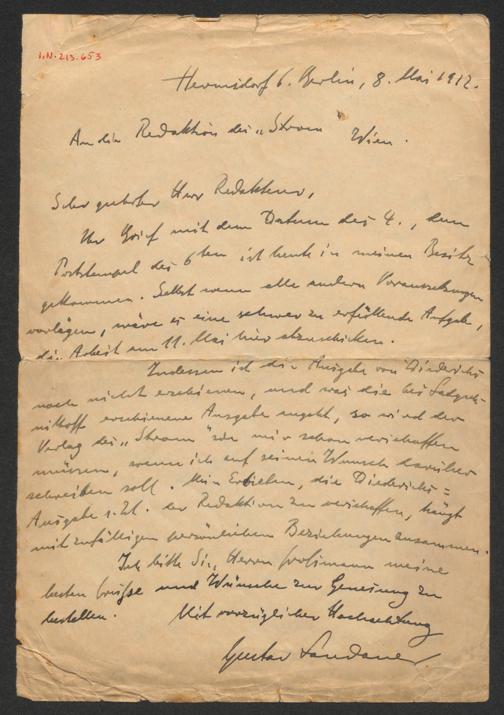 I.N. 213.653
Hermsdorf b. Berlin, 8. Mai 1912.
An die Redaktion des „Strom" Wien.
Sehr geehrter Herr Redakteur,
Ihr Brief mit dem Datum des 4., dem
Poststempel des 6ten ist heute in meinen Besitz
gekommen. Selbst wenn alle andern Voraussetzungen
vorlägen, wäre es eine schwer zu erfüllende Aufgabe,
die Arbeit am 11. Mai hier abzuschicken.
Indessen ist die Ausgabe von Diederichs
noch nicht erschienen, und was die bei
erschienene Ausgabe angeht, so wird der
Verlag des „Strom" sie mir schon verschaffen
müssen, wenn ich auf seinen Wunsch darüber
schreiben soll. Mein Erbieten, die Diederichs=
Ausgabe s. Zt. der Redaktion zu verschaffen, hängt
mit zufälligen persönlichen Beziehungen zusammen.
Ich bitte Sie, Herrn Großmann meine
besten Grüße und Wünsche zur Genesung zu
bestellen. Mit vorzüglicher Hochachtung
Gustav Landauer